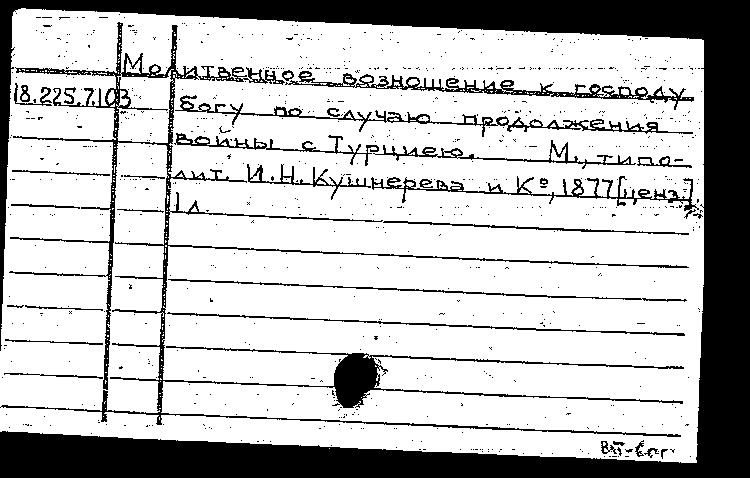 Молитвенное возношение к господу
18.225.7.103 богу по случаю продолжения
войны с Турциею. М., типо-
лит. И.Н. Кушнерева и Кº, 1877 [ценз.]
1 л.